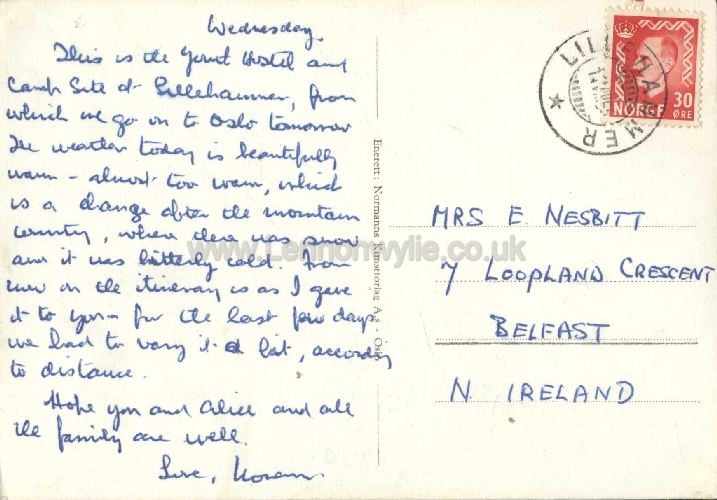 Wednesday.
This is the Youth Hostel and
Camp Site at Lillehammer, from
which we go on to Oslo tomorrow
The weather today is beautifully
warm - almost too warm, which
is a change after the mountain
country, where there was snow
and it was bitterly cold. From
now on the itinerary is as I gave
it to you - for the last few days
we had to vary it a bit, according
to distance.
Hope you and Alice and all
the family are well.
Love,
Enerett: Normanns Kunstforlag A/s - Oslo
LILLEHAMMER
NORGE 30
ØRE
MRS E. NESBITT
7 LOOPLAND CRESCENT
BELFAST
N. IRELAND
www.Lennonwylie.co.uk